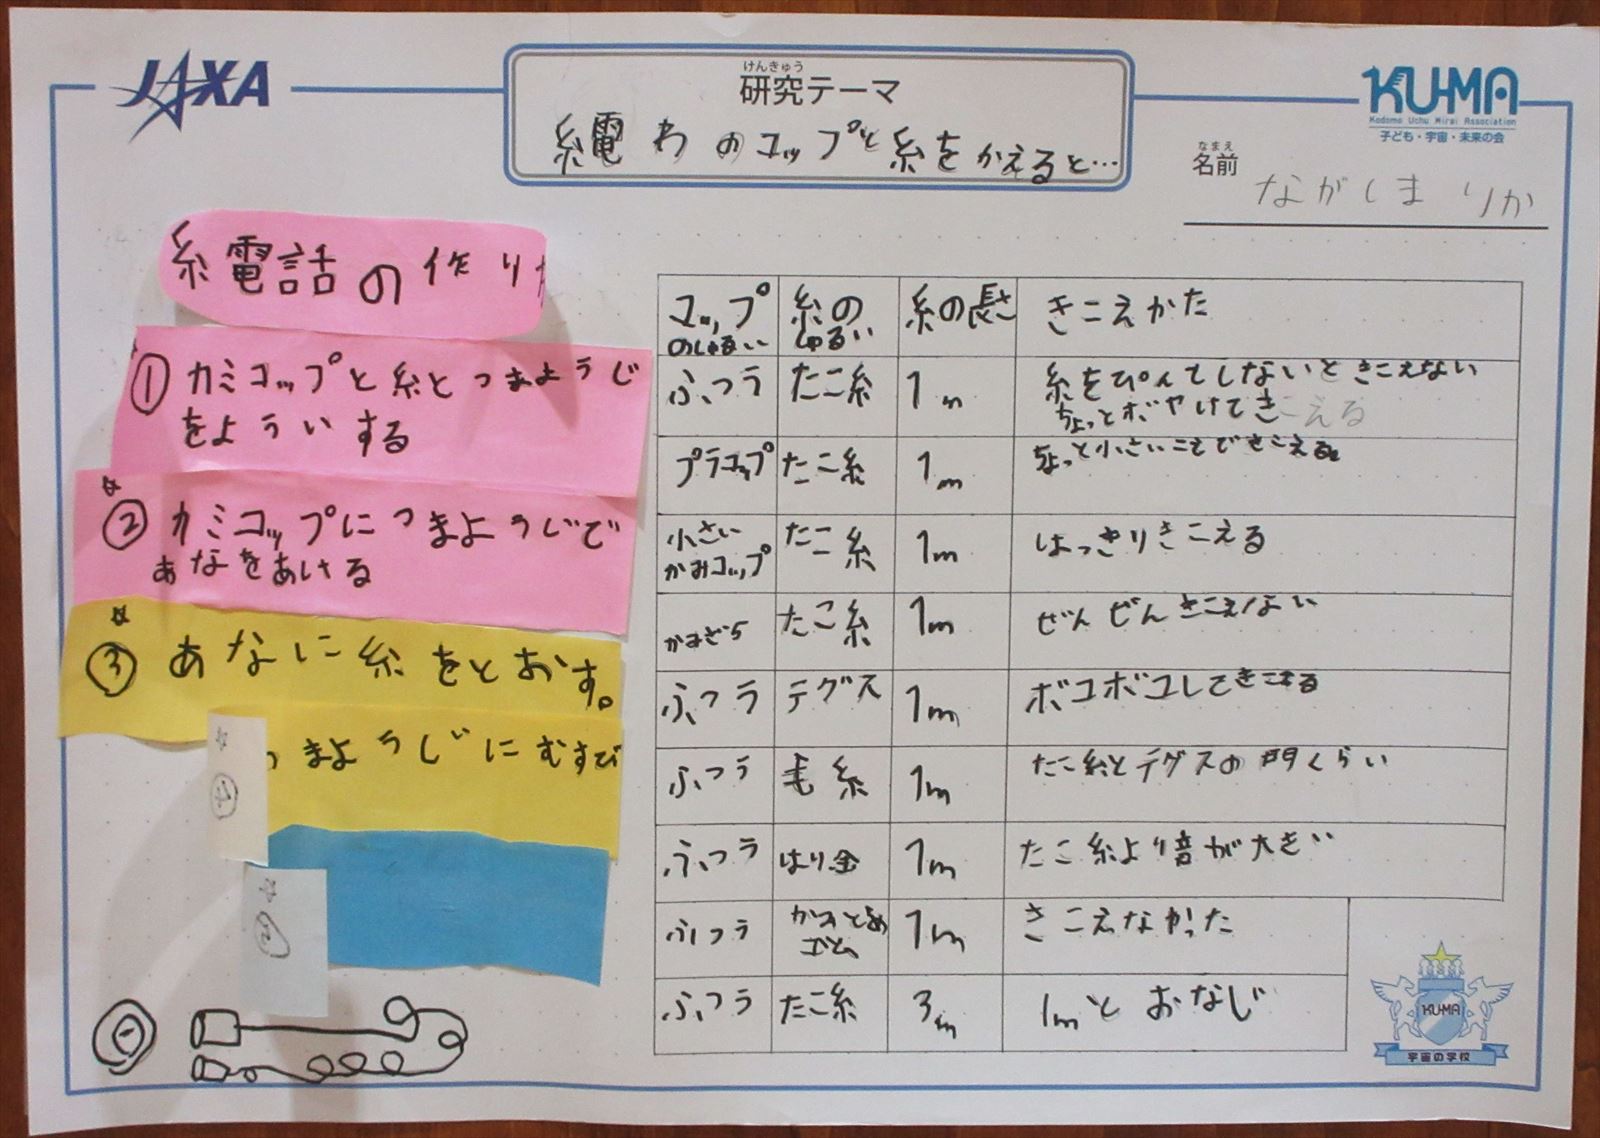 JAXA
けんきゅう
研究テーマ
糸電わのコップと糸をかえると…
KU-MA
Kodomo Uchu Mirai Association
子ども・宇宙・未来の会
なまえ
名前
ながしま りか
糸電話の作り
① カミコップと糸とつまようじ
をよういする
② カミコップにつまようじで
あなをあける
③ あなに糸をとおす。
④
つまようじにむすび
コップのしゅるい 糸のしゅるい 糸の長さ きこえかた
ふつう たこ糸 1m 糸をぴんてしないときこえない
ちょっとボヤけてきこえる
プラコップ たこ糸 1m ちょっと小さいこえできこえる。
小さいかみコップ たこ糸 1m はっきりきこえる
かみざら たこ糸 1m ぜんぜんきこえない
ふつう テグス 1m ボコボコしてきこえる
ふつう 毛糸 1m たこ糸とテグスの間くらい
ふつう はり金 1m たこ糸より音が大きい
ふつう 1m きこえなかった
ふつう たこ糸 3m 1mとおなじ
KU-MA
宇宙の学校